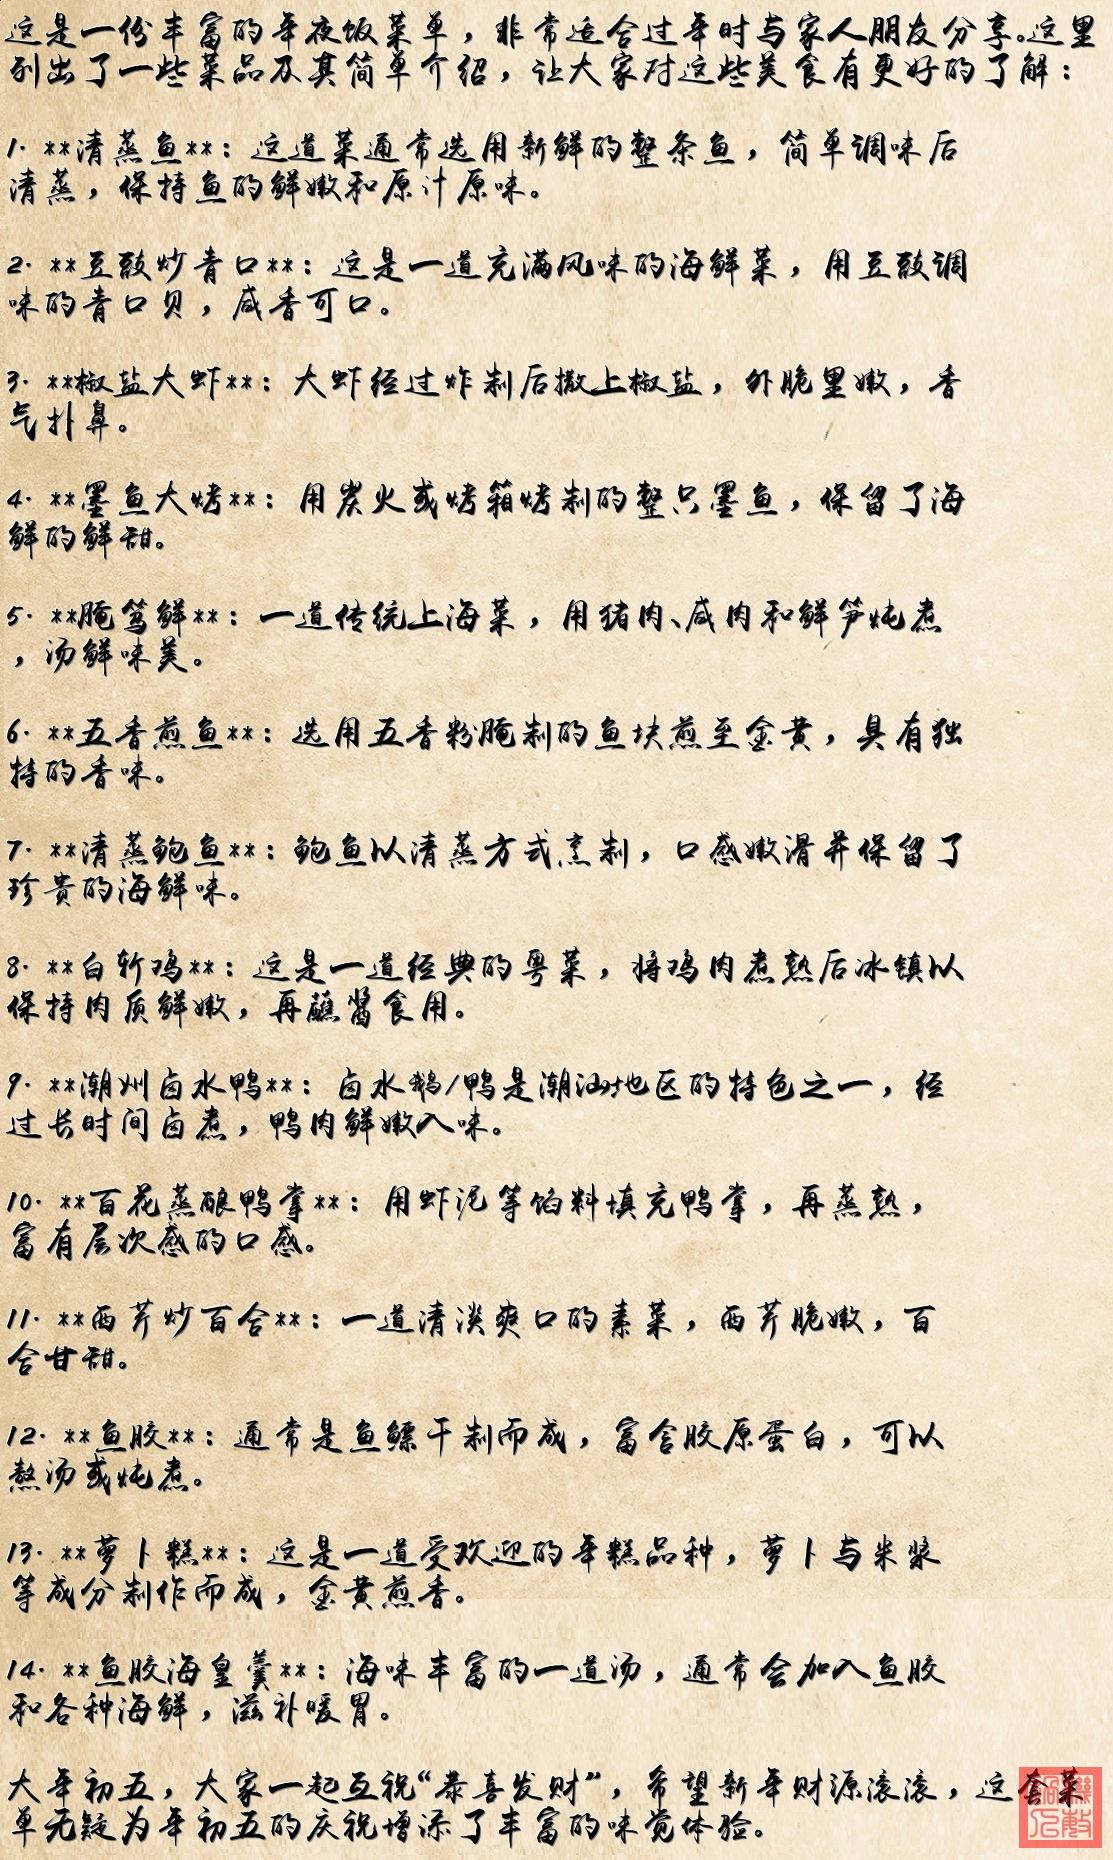 这是一份丰富的年夜饭菜单，非常适合过年时与家人朋友分享。这里
列出了一些菜品及其简单介绍，让大家对这些美食有更好的了解：
1. **清蒸鱼**：这道菜通常选用新鲜的整条鱼，简单调味后
清蒸，保持鱼的鲜嫩和原汁原味。
2. **豆豉炒青口**：这是一道充满风味的海鲜菜，用豆豉调
味的青口贝，咸香可口。
3. **椒盐大虾**：大虾经过炸制后撒上椒盐，外脆里嫩，香
气扑鼻。
4. **墨鱼大烤**：用炭火或烤箱烤制的整只墨鱼，保留了海
鲜的鲜甜。
5. **腌笃鲜**：一道传统上海菜，用猪肉、咸肉和鲜笋炖煮
，汤鲜味美。
6. **五香煎鱼**：选用五香粉腌制的鱼块煎至金黄，具有独
特的香味。
7. **清蒸鲍鱼**：鲍鱼以清蒸方式烹制，口感嫩滑并保留了
珍贵的海鲜味。
8. **白斩鸡**：这是一道经典的粤菜，将鸡肉煮熟后冰镇以
保持肉质鲜嫩，再蘸酱食用。
9. **潮州卤水鸭**：卤水鹅/鸭是潮汕地区的特色之一，经
过长时间卤煮，鸭肉鲜嫩入味。
10. **百花蒸酿鸭掌**：用虾泥等馅料填充鸭掌，再蒸熟，
富有层次感的口感。
11. **西芹炒百合**：一道清淡爽口的素菜，西芹脆嫩，百
合甘甜。
12. **鱼胶**：通常是鱼鳔干制而成，富含胶原蛋白，可以
熬汤或炖煮。
13. **萝卜糕**：这是一道受欢迎的年糕品种，萝卜与米浆
等成分制作而成，金黄煎香。
14. **鱼胶海皇羹**：海味丰富的一道汤，通常会加入鱼胶
和各种海鲜，滋补暖胃。
大年初五，大家一起互祝“恭喜发财”，希望新年财源滚滚，这套菜
单无疑为年初五的庆祝增添了丰富的味觉体验。